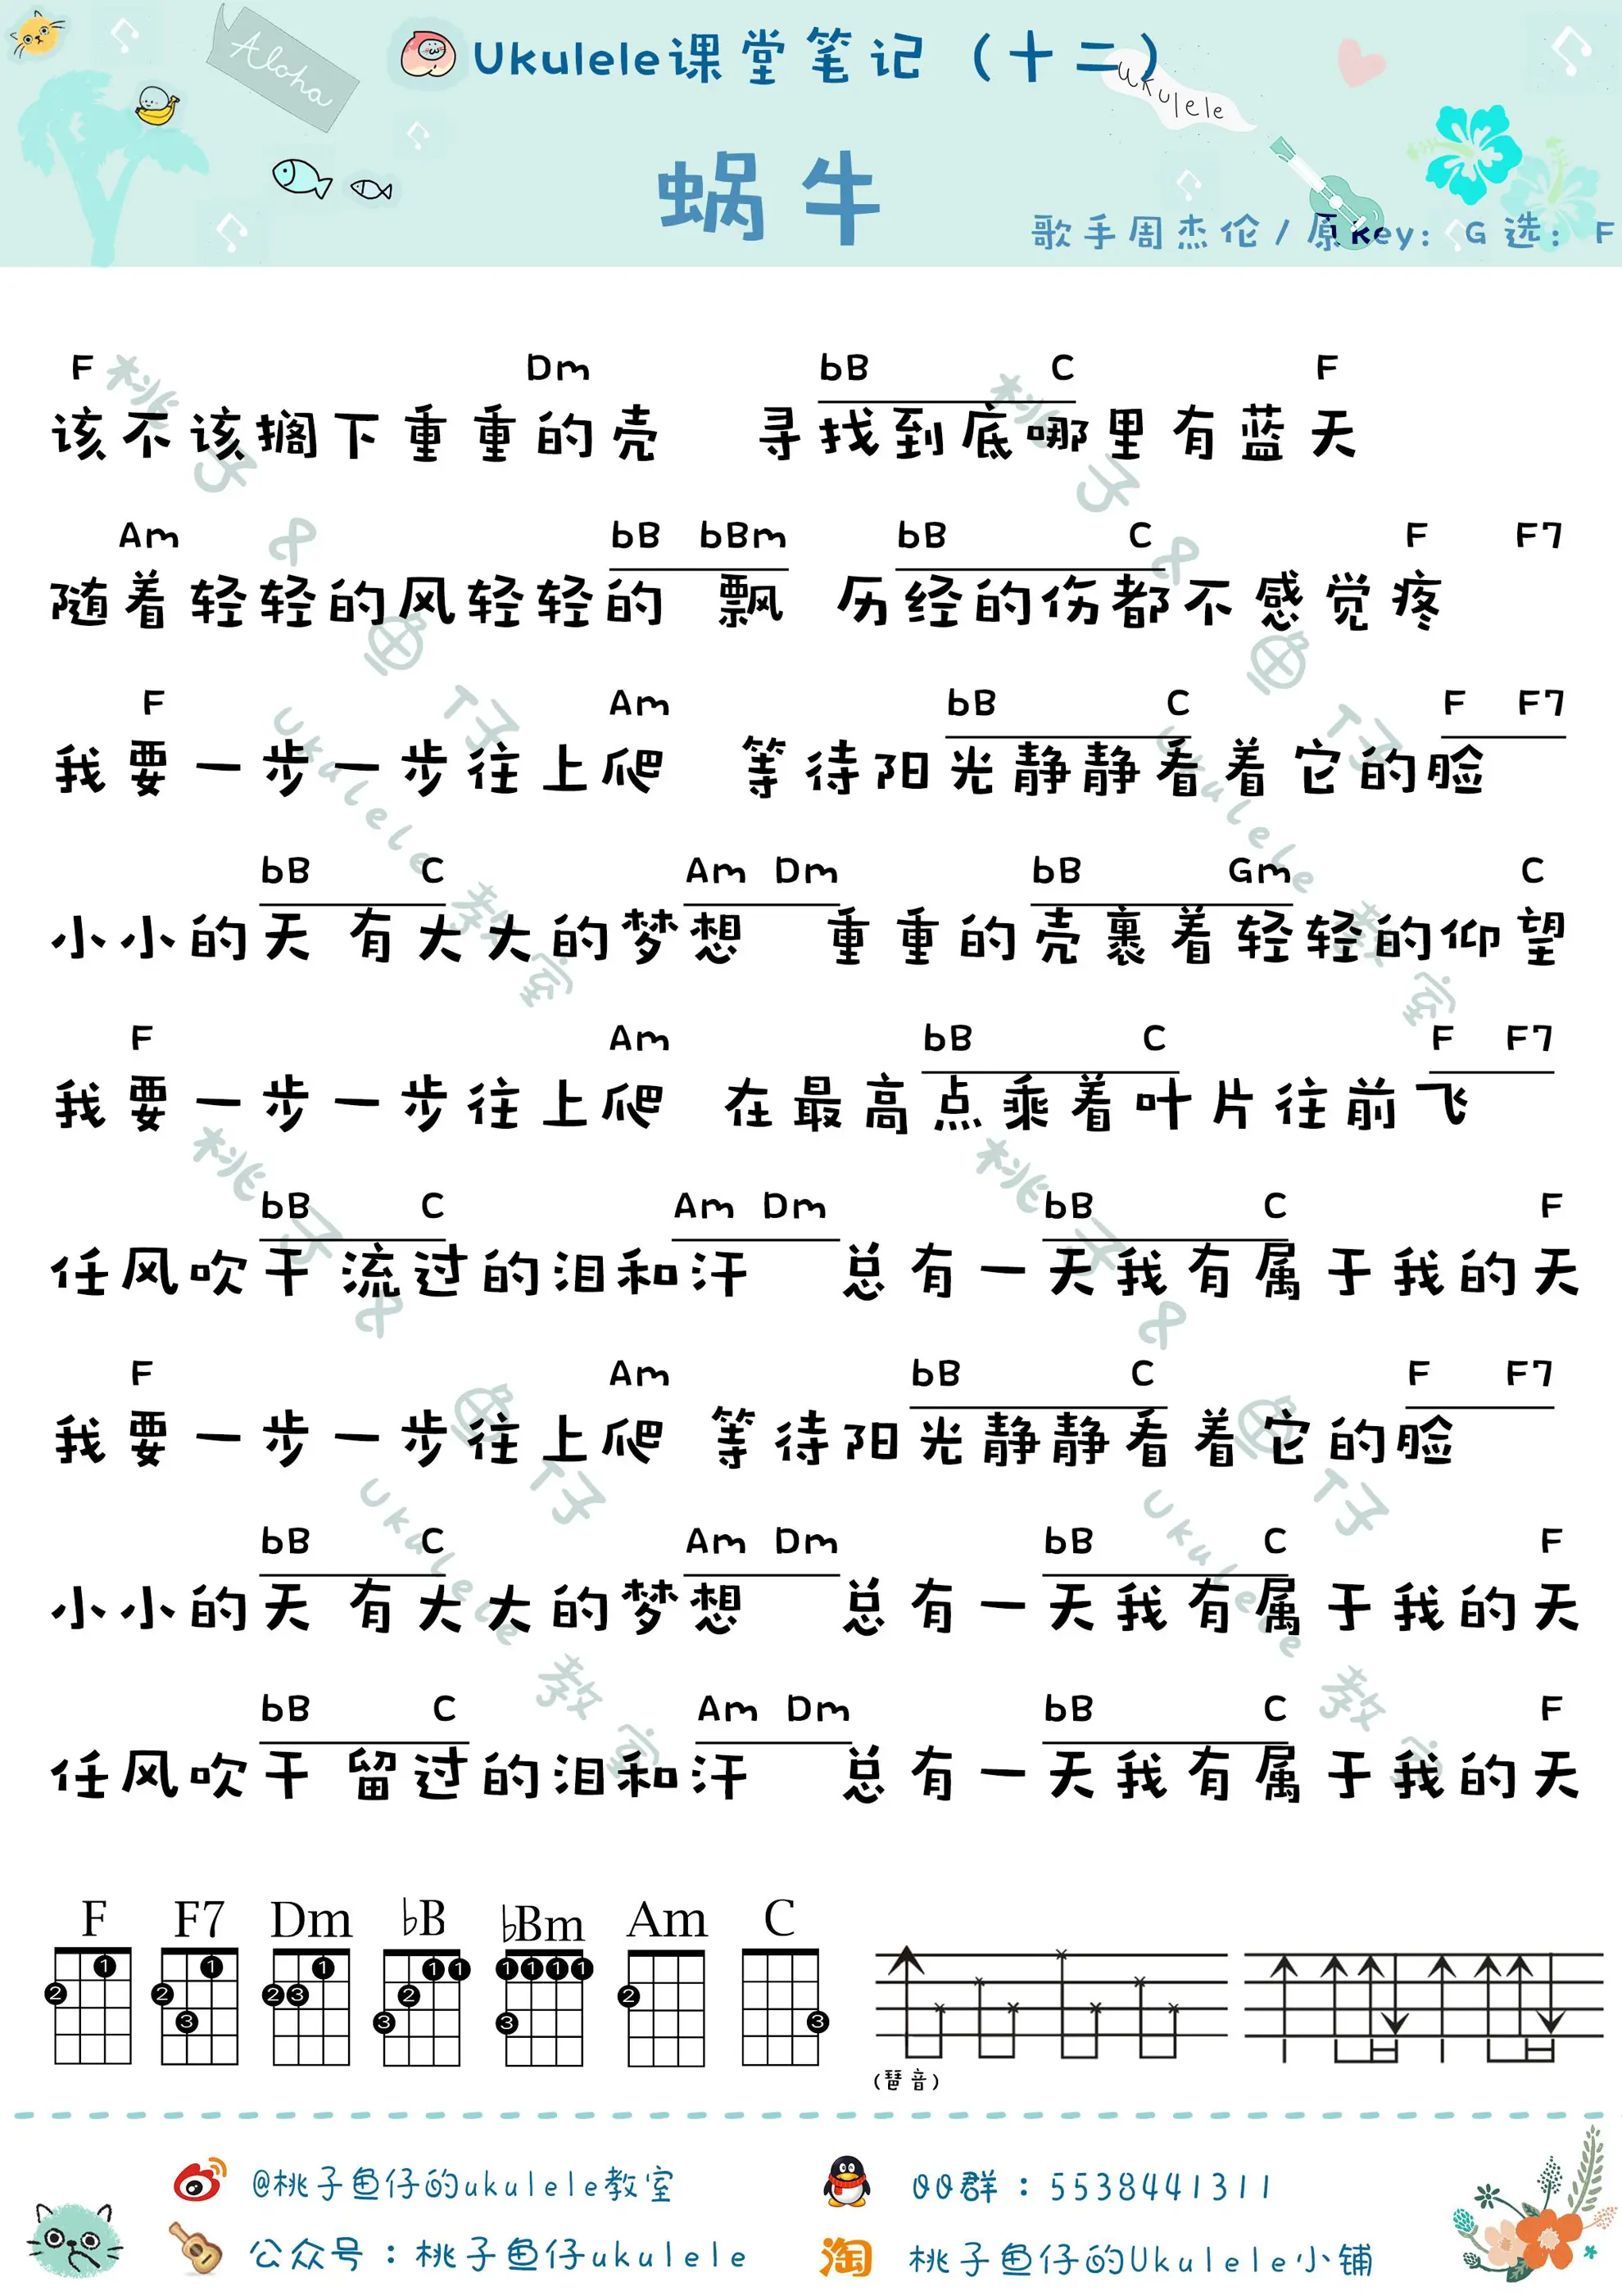 Aloha
Ukulele课堂笔记（十二）
Ukulele
蜗牛
歌手周杰伦/原key: G选: F
F Dm bB C F
该不该搁下重重的壳 寻找到底哪里有蓝天
Am bB bBm bB C F F7
随着轻轻的风轻轻的 飘 历经的伤都不感觉疼
F Am bB C F F7
我要一步一步往上爬 等待阳光静静看着它的脸
bB C Am Dm bB Gm C
小小的天 有大大的梦想 重重的壳裹着轻轻的仰望
F Am bB C F F7
我要一步一步往上爬 在最高点乘着叶片往前飞
bB C Am Dm bB C F
任风吹干 流过的泪和汗 总有一天我有属于我的天
F Am bB C F F7
我要一步一步往上爬 等待阳光静静看着它的脸
bB C Am Dm bB C F
小小的天 有大大的梦想 总有一天我有属于我的天
bB C Am Dm bB C F
任风吹干 留过的泪和汗 总有一天我有属于我的天
F F7 Dm ♭B ♭Bm Am C
(琶音)
@桃子鱼仔的ukulele教室
QQ群：5538441311
公众号：桃子鱼仔ukulele
淘 桃子鱼仔的Ukulele小铺
桃子&鱼仔Ukulele教室
桃子&鱼仔Ukulele教室
桃子&鱼仔Ukulele教室
桃子&鱼仔Ukulele教室